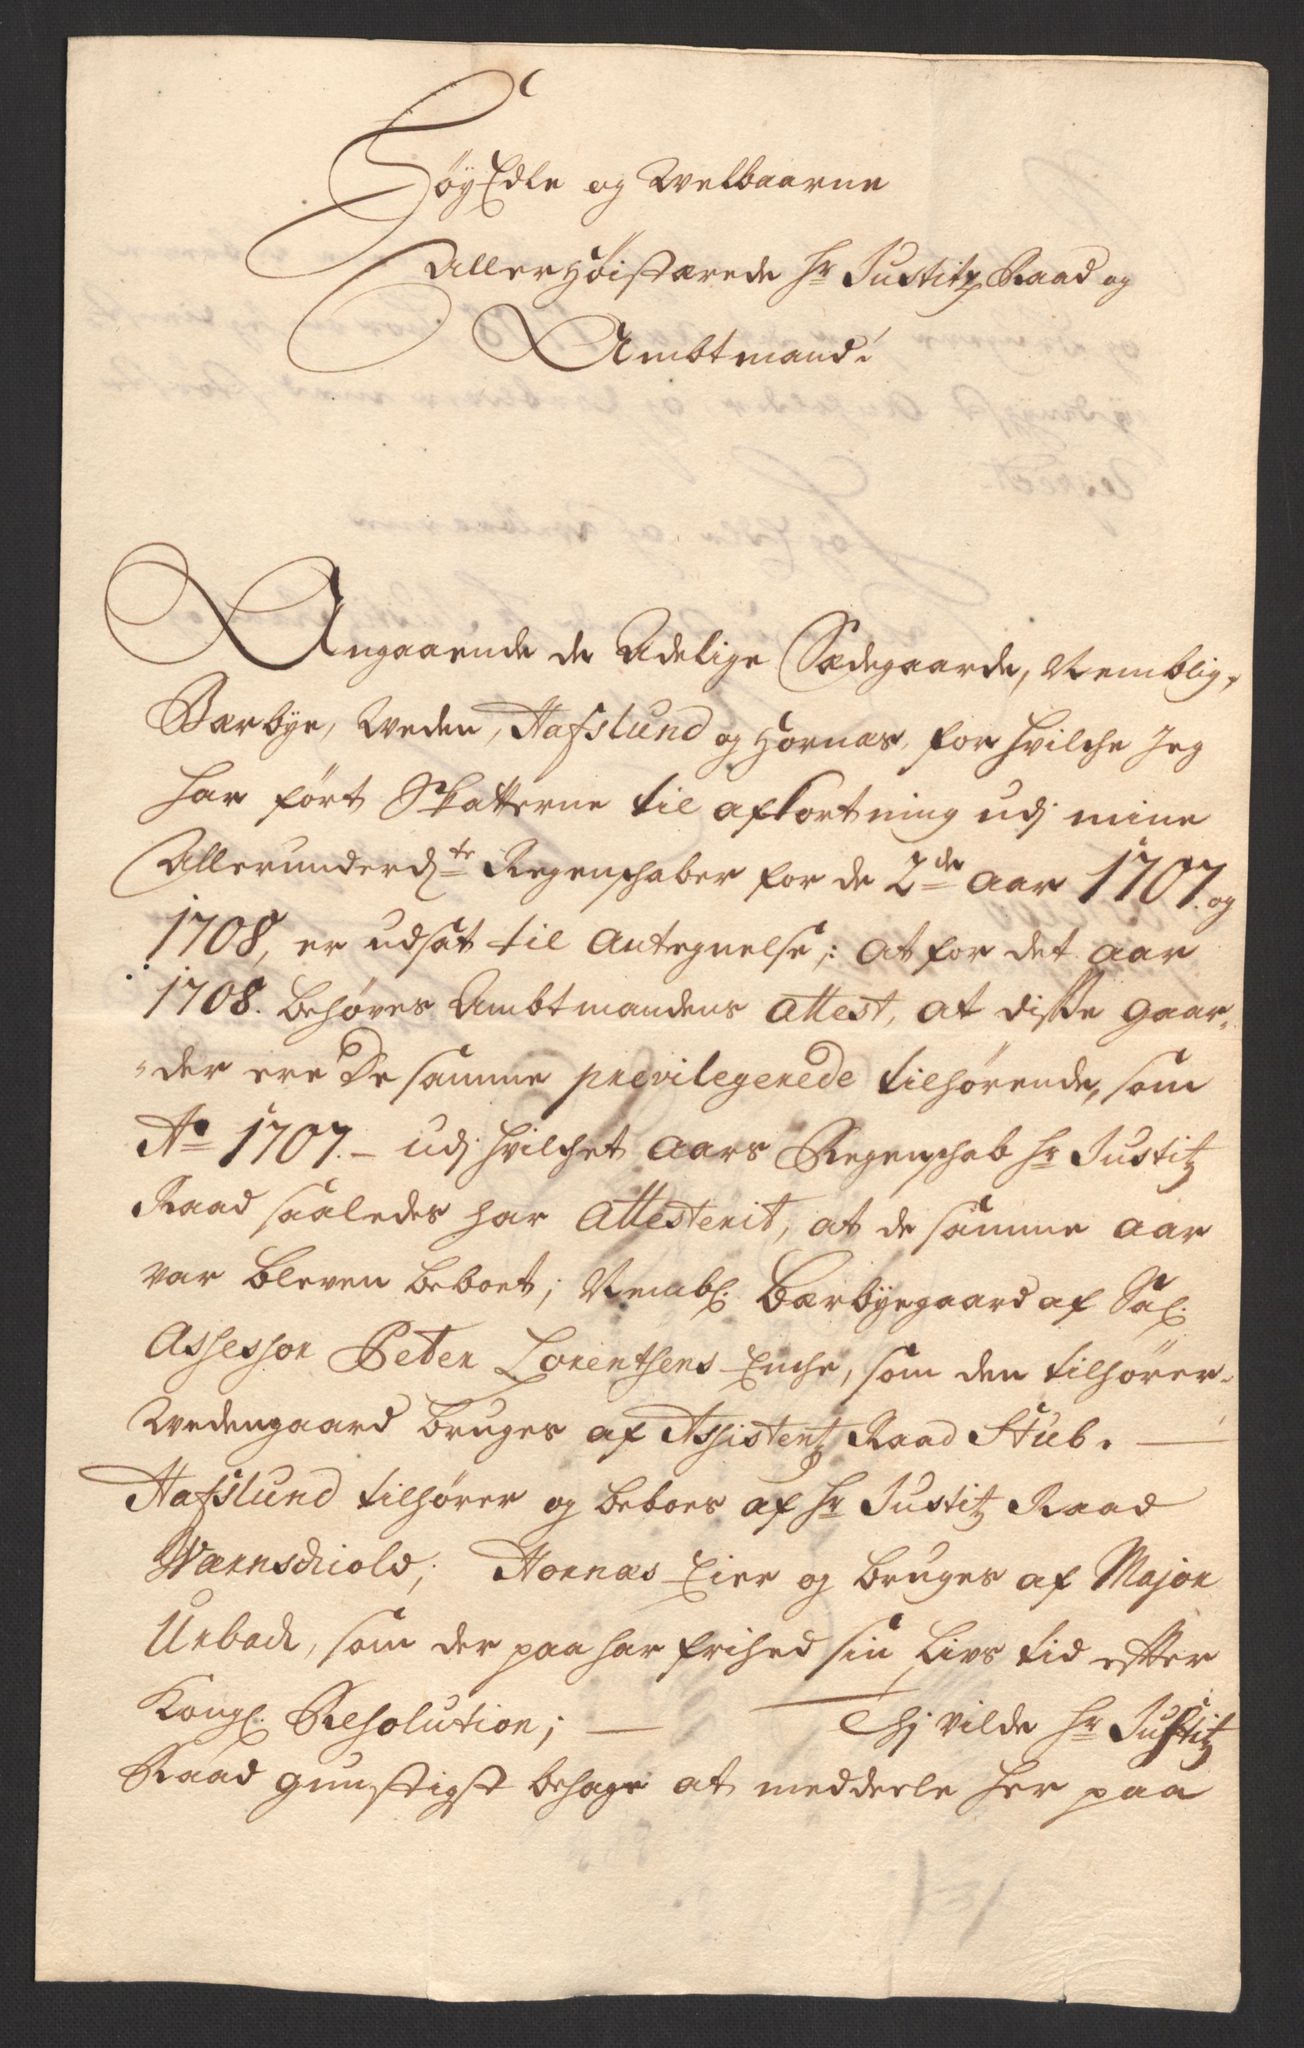 HøyEdle og Welbaarne
Allerhøistærede hr Justitz Raad og
Ambtmand!
Angaaende de Adelige Sædegaarde, Nemblig,
Bærbye, Weden, Hafslund og Hornæs, for hvilche Jeg
har ført Skatterne til afkortning udj mine
Allerunderd:te Regenschaber for de 2de Aar 1707. og
1708, er udsat til Antegnelse; At for det Aar
1708. behøves Ambtmandens Attest, at disse gaar-
der ere De samme previlegerede tilhørende, som
Ao 1707. – udj hvilchet Aars Regenschab hr Justitz
Raad saaledes har Attesterit, at de samme Aar
var bleven beboet; Nembl: Bærbyegaard af Sal:
Assessor Peter Lorentsens Enche, som den tilhører.
Wedengaard bruges af Assistentz Raad Stub. —
Hafslund tilhører og beboes af hr Justitz Raad
Wærnschiold; Hornæs Eier og bruges af Major
Urbach, som der paa har frihed sin Livs tid efter
Kongl: Resolution; — Thj vilde hr Justitz
Raad gunstigst behage at meddeele her paa